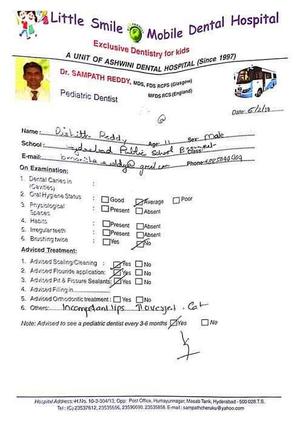 Little Smile Mobile Dental Hospital
Exclusive Dentistry for kids
A UNIT OF ASHWINI DENTAL HOSPITAL (Since 1997)
Dr. SAMPATH REDDY, MDS, FDS RCPS (Glasgow)
MFDS RCS (England)
Pediatric Dentist
Date:
Name: Reddy Age: 11 Sex: Male
School: Hyderabad Public School
Class:
E-mail: Phone:
On Examination:
1. Dental Caries in :
(Cavities)
2. Oral Hygiene Status : Good Average Poor
3. Physiological : Present Absent
Spaces
4. Habits : Present Absent
5. Irregular teeth : Present Absent
6. Brushing twice : Yes No
Advised Treatment:
1. Advised Scaling/Cleaning : Yes No
2. Advised Flouride application: Yes No
3. Advised Pit & Fissure Sealants: Yes No
4. Advised Filling in
5. Advised Orthodontic treatment : Yes No
6. Others: Incompetant lips
Note: Advised to see a pediatric dentist every 3-6 months Yes No
Hospital Address: H.No. 10-3-304/13, Opp: Post Office, Humayunnagar, Masab Tank, Hyderabad - 500 028.T.S.
Tel: (C) 23537612, 23535556, 23590690, 23535858. E-mail: sampathcheruku@yahoo.com